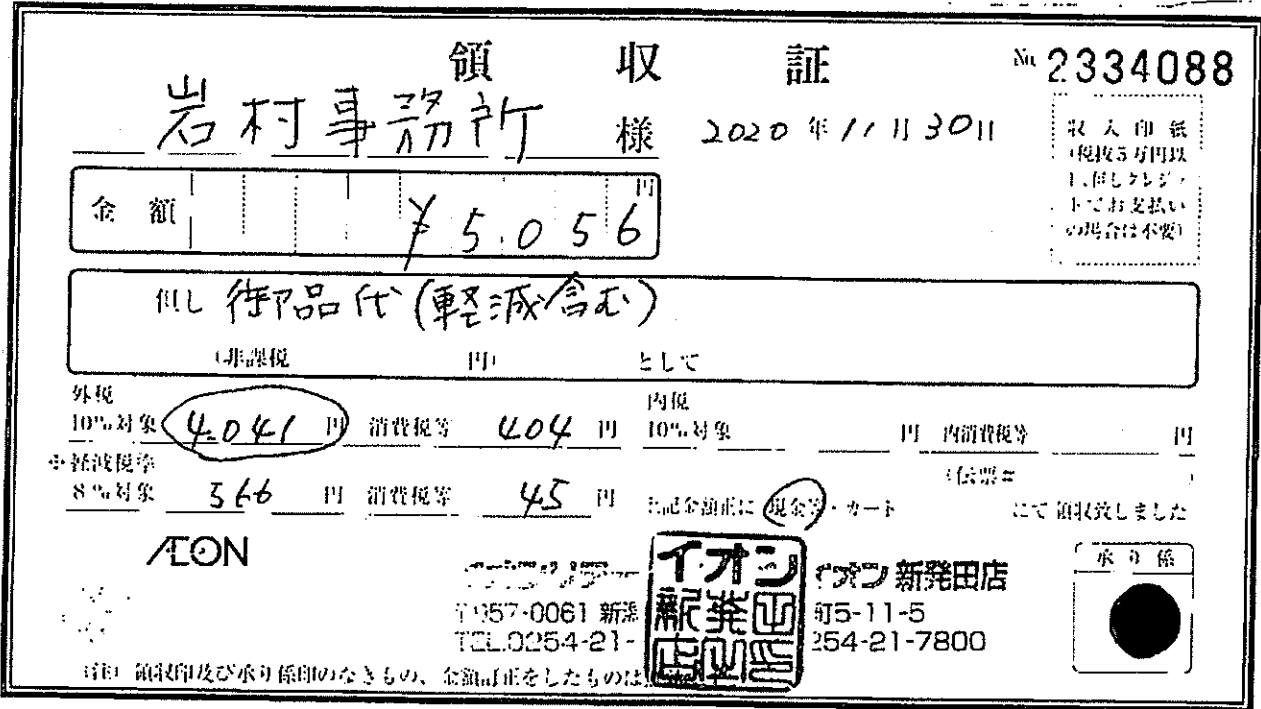 領収証 No. 2334088
岩村事務所 様 2020年11月30日
収入印紙
(税抜5万円以
上、但しクレジッ
トでお支払い
の場合は不要)
金額 ¥5.056円
但し 御品代(軽減含む)
(非課税 円) として
外税
10%対象 4.041円 消費税等 404円
内税
10%対象 円 内消費税等 円
※軽減税率
8%対象 566円 消費税等 45円
(伝票# )
上記金額正に 現金等・カード にて領収致しました
ÆON
イオン 新発田店
〒957-0061 新潟
町5-11-5
TEL.0254-21-
254-21-7800
イオン新発田店印
承り係
(注) 領収印及び承り係印のなきもの、金額訂正をしたものは